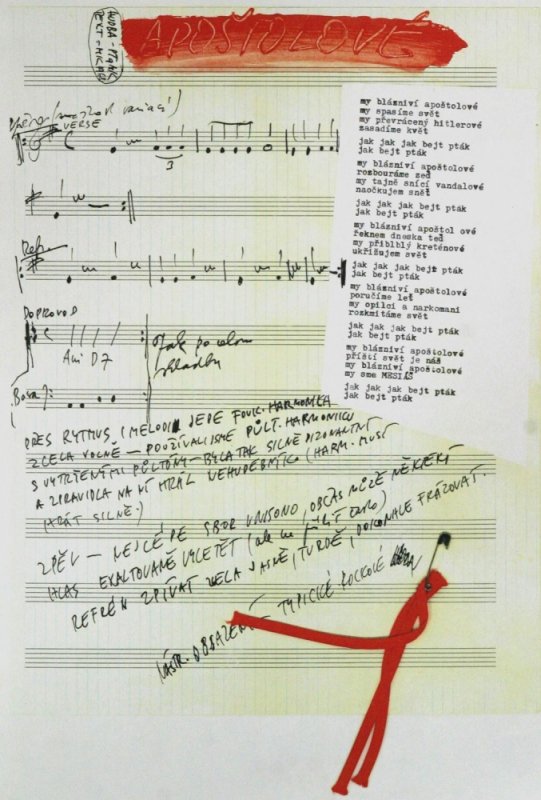 HUDBA - PTÁK
TEXT - MICHAL
APOŠTOLOVÉ
VERSE
3
Refr.
DOPROVOD
Ami D7
Tak po celou
skladbu
Basa
my blázniví apoštolové
my spasíme svět
my převrácený hitlerové
zasadíme květ
jak jak jak bejt pták
jak bejt pták
my blázniví apoštolové
rozbouráme zeď
my tajně snící vandalové
naočkujem snět
jak jak jak bejt pták
jak bejt pták
my blázniví apoštol ové
řeknem dneska teď
my přiblblý kreténové
ukřižujem svět
jak jak jak bejt pták
jak bejt pták
my blázniví apoštolové
poručíme leť
my opilci a narkomani
rozkmitáme svět
jak jak jak bejt pták
jak bejt pták
my blázniví apoštolové
příští svět je náš
my blázniví apoštolové
my sme MESIÁŠ
jak jak jak bejt pták
jak bejt pták
PŘES RYTMUS I MELODII JEDE FOUK. HARMONIKA
ZCELA VOLNĚ - POUŽÍVALI JSME PŮLT. HARMONIKU
S VYTRŽENÝMI PŮLTÓNY - BYLA TAK SILNĚ DIZONANTNÍ
A ZPRAVIDLA NA NÍ HRÁL NEHUDEBNÍK (HARM. MUSÍ
HRÁT SILNĚ)
ZPĚV - NEJLÉPE SBOR UNISONO, OBČAS MŮŽE NĚKTERÝ
HLAS EXALTOVANĚ VYLETĚT (ale ne příliš často)
REFRÉN ZPÍVAT ZCELA JASNĚ, TVRDĚ, DOKONALE FRÁZOVAT.
NÁSTR. OBSAZENÍ TYPICKÉ ROCKOVÉ